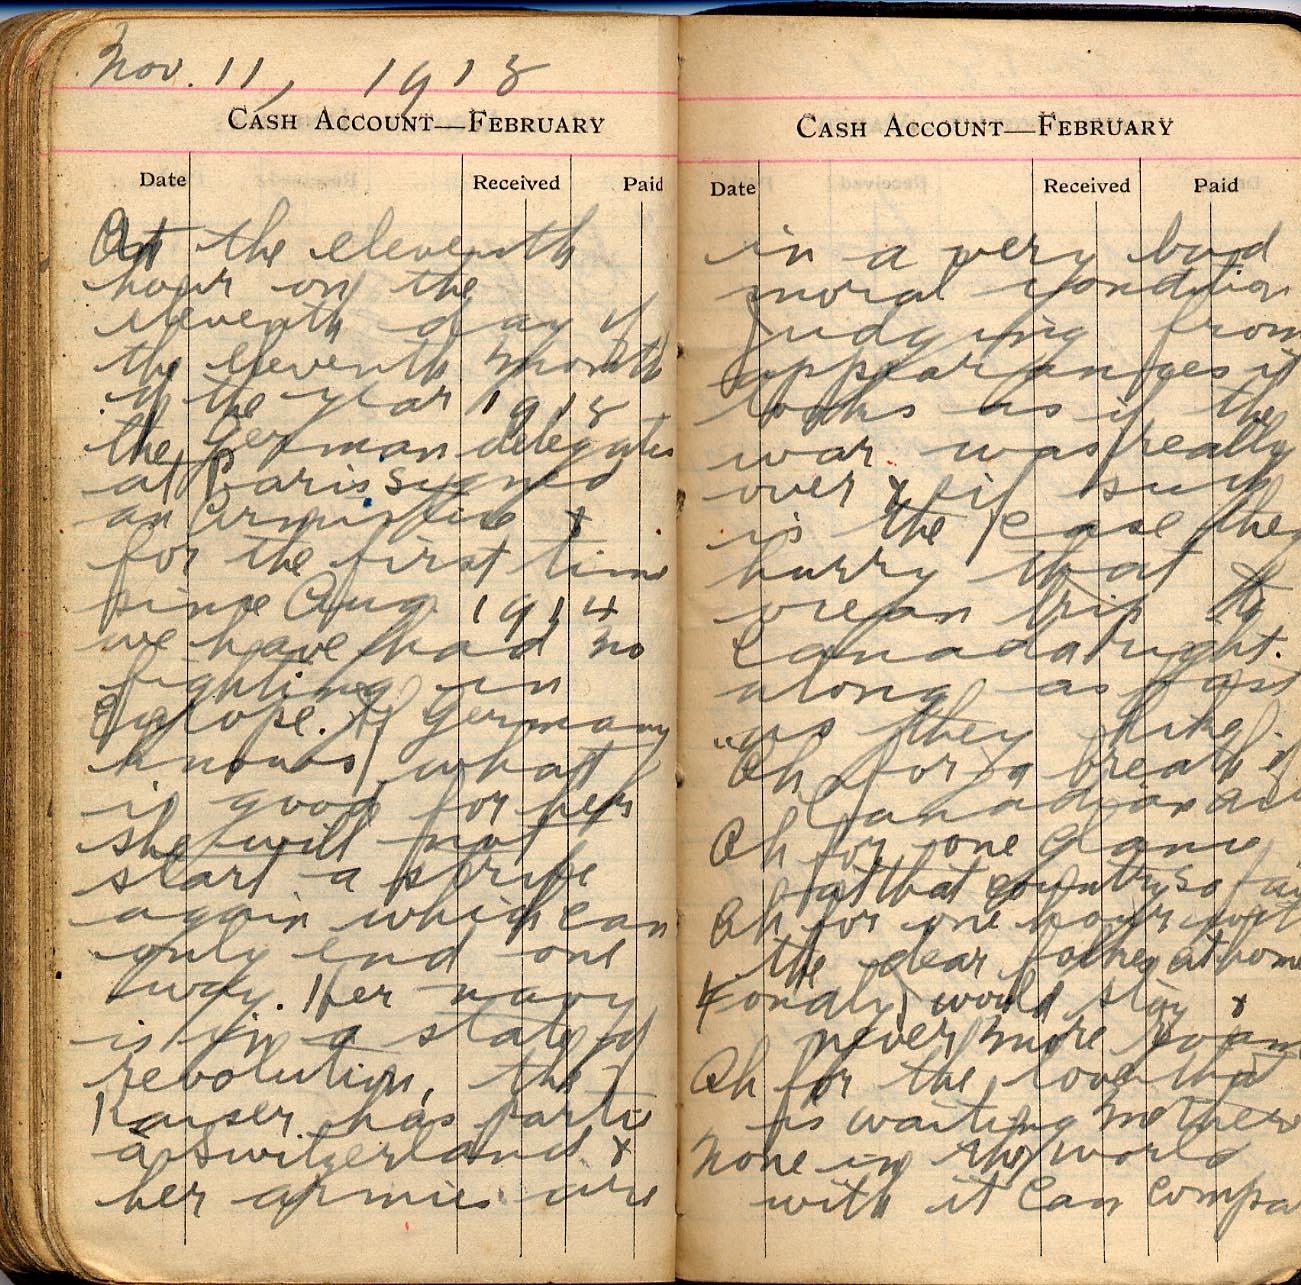 Nov. 11, 1918
CASH ACCOUNT—FEBRUARY
Date Received Paid
At the eleventh
hour on the
eleventh day of
the eleventh month
of the year 1918
the German delegates
at Paris signed
an Armistice &
for the first time
since Aug. 1914
we have had no
fighting in
Europe. If Germany
knows what
is good for her
she will not
start a strife
again which can
only end one
way. Her navy
is in a state of
revolution, the
Kaiser has partie
a Switzerland &
her armies are
CASH ACCOUNT—FEBRUARY
Date Received Paid
in a very bad
moral condition
Judging from
appearances it
looks as if the
war was really
over & if such
is the case they
hurry that
ocean trip to
Canada right.
along as fast
as they like.
"Oh for a breath of
Canadian air
Oh for one glance
at that country so far
Oh for one hour wit
the dear folks at home
Fondly would stay &
never more roam
Oh for the love that
is waiting me there
None in the world
with it can compa